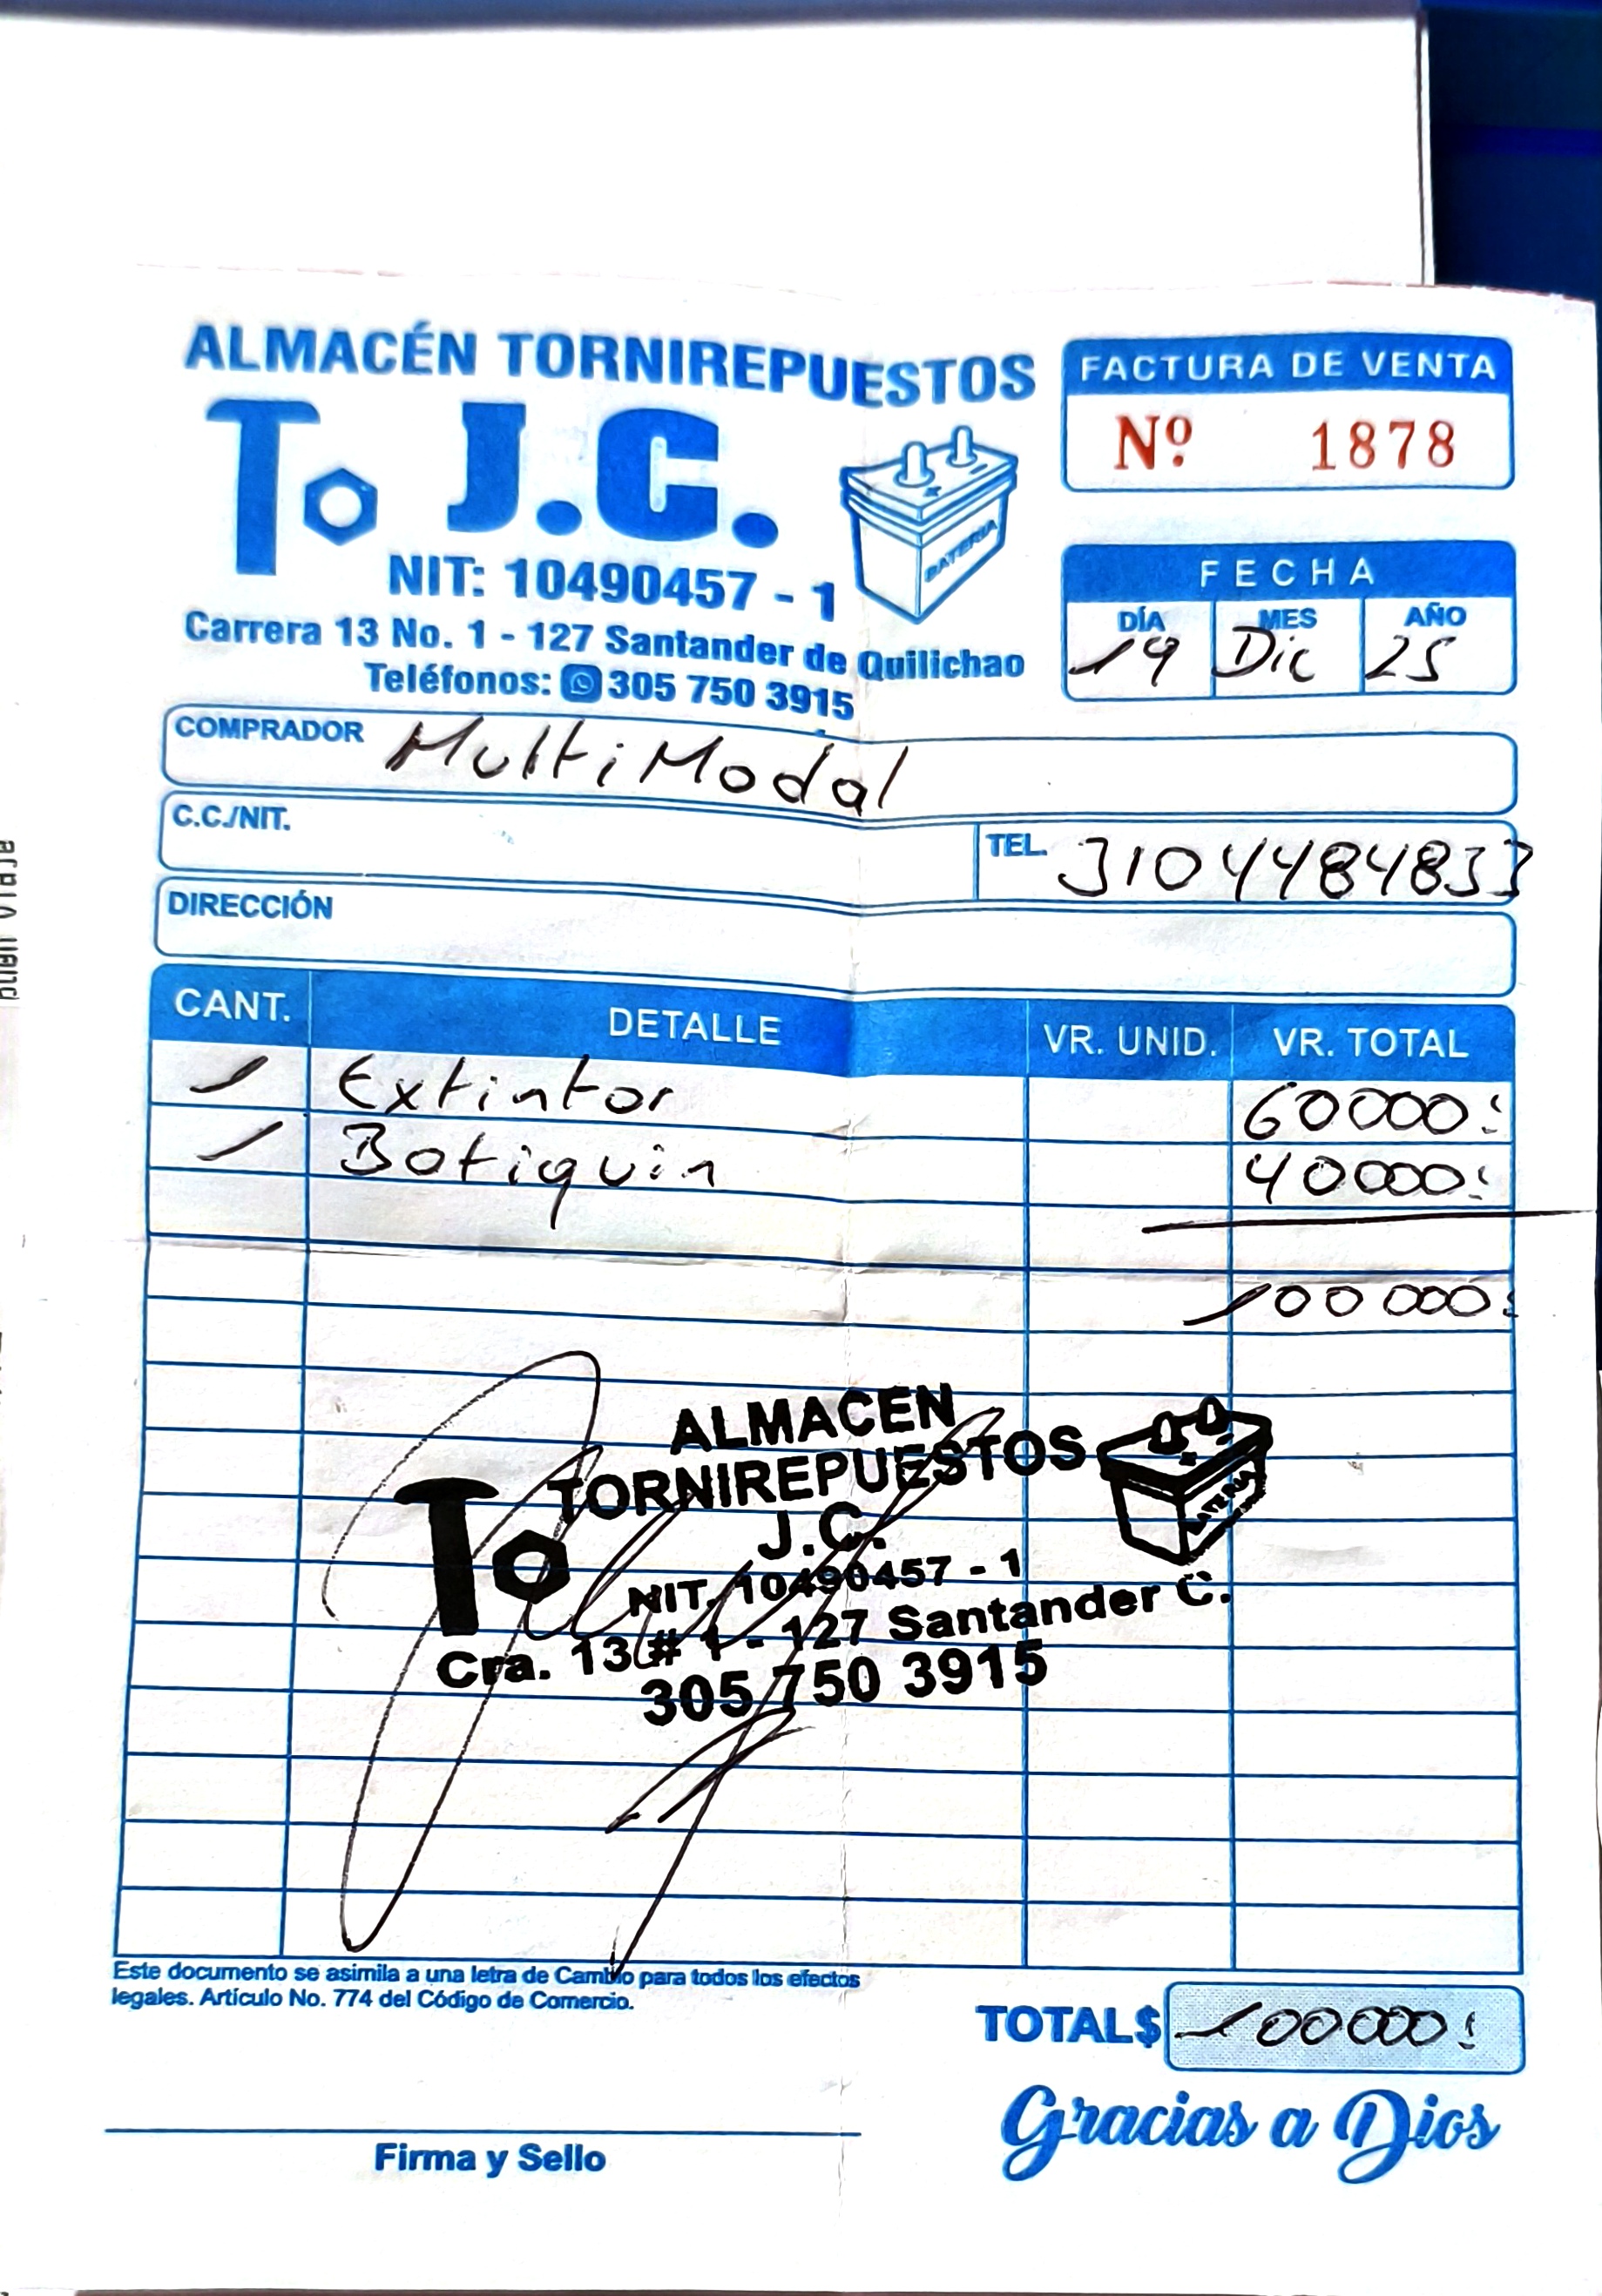 ALMACÉN TORNIREPUESTOS
J.C.
BATERIA
NIT: 10490457 - 1
Carrera 13 No. 1 - 127 Santander de Quilichao
Teléfonos: 305 750 3915
FACTURA DE VENTA
Nº 1878
FECHA
DÍA MES AÑO
19 Dic 25
COMPRADOR MultiModal
C.C./NIT.
TEL. 3104484833
DIRECCIÓN
CANT. DETALLE VR. UNID. VR. TOTAL
1 Extintor 60000
1 Botiquin 40000
100000
ALMACEN
TORNIREPUESTOS
J.C.
NIT. 10490457 - 1
Cra. 13 # 1 - 127 Santander C.
305 750 3915
Este documento se asimila a una letra de Cambio para todos los efectos
legales. Artículo No. 774 del Código de Comercio.
TOTAL $ 100000
Gracias a Dios
Firma y Sello